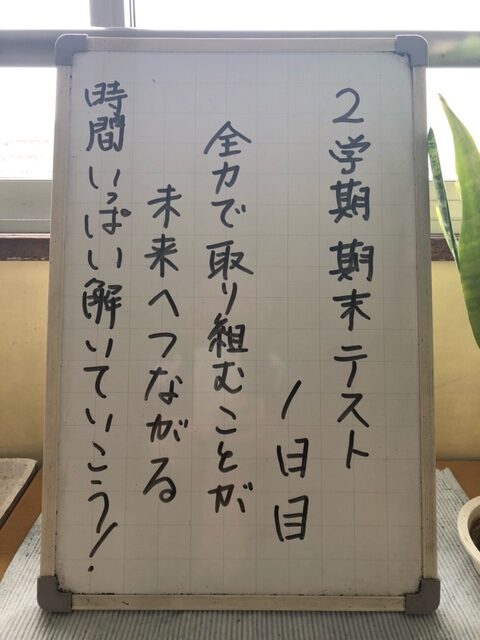 2学期 期末テスト
1日目
全力で取り組むことが
未来へつながる
時間いっぱい解いていこう!